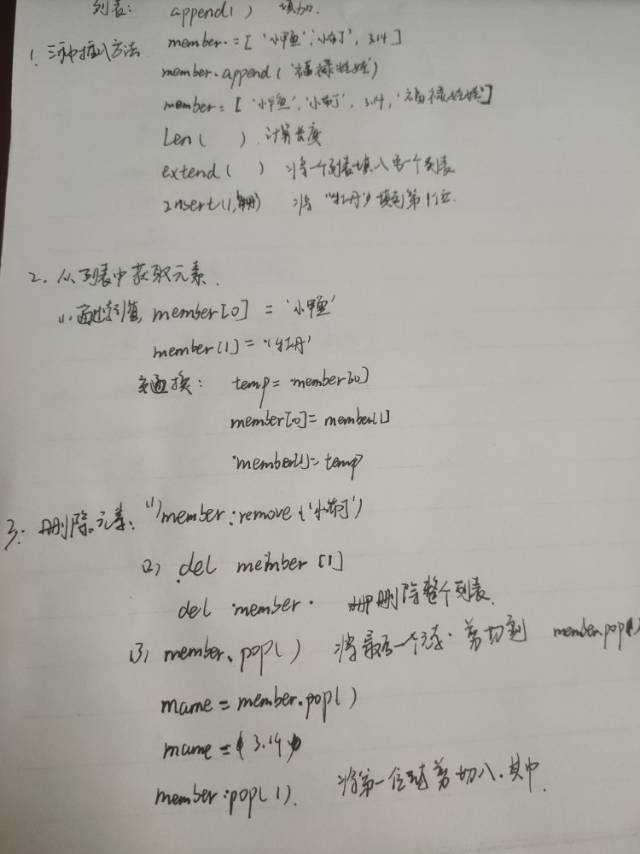 列表: append( ) 添加.
1. 三种插入方法 member = [ '小甲鱼', '小布丁', 3.14 ]
member.append( '福禄娃娃')
member = [ '小甲鱼', '小布丁', 3.14, '福禄娃娃']
Len( ) 计算长度
extend( ) 将一个列表填入另一个列表
insert(1, 牡丹) 将 "牡丹" 填到第1位.
2. 从列表中获取元素.
(1). 通过索引值, member[0] = '小甲鱼'
member[1] = '牡丹'
交换: temp = member[0]
member[0] = member[1]
member[1] = temp
3. 删除元素: (1) member.remove ('小布丁')
(2) del member [1]
del member. 删除整个列表.
(3) member.pop( ) 将最后一个元素. 剪切到 member.pop(
mame = member.pop( )
mame = 3.14
member.pop(1). 将第一位 剪切入.其中.